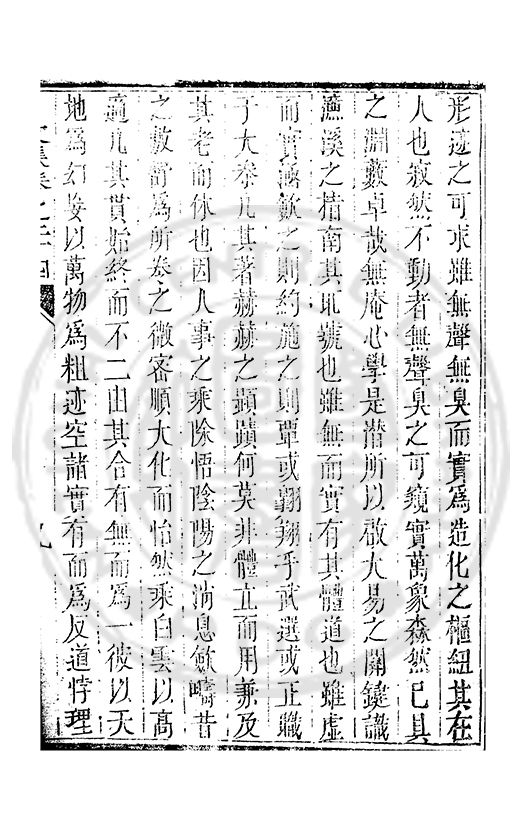 形迹之可求雖無聲無臭而實爲造化之樞紐其在
人也寂然不動者無聲臭之可窺實萬象森然已具
之淵藪卓哉無庵心學是潛所以啟大易之關鍵識
濂溪之指南其取號也雖無而實有其體道也雖虛
而實涵斂之則約施之則覃或翺翔乎武選或正職
于大參凡其著赫赫之顯蹟何莫非體立而用兼及
其老而休也因人事之乘除悟陰陽之消息斂疇昔
之敷舒爲所卷之微密順大化而怡然乘白雲以高
適凡其貫始終而不二由其合有無而爲一彼以天
地爲幻妄以萬物爲粗迹空諸實有而爲反道悖理
文集卷之二十四
九